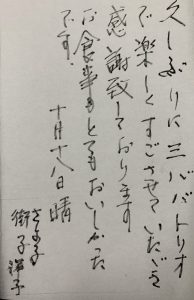 久しぶりに三ババトリオ
で楽しくすごさせていただき
感謝致しております
お食事もとてもおいしかった
です。
十月十八日 晴
さよ子
街子 洋子